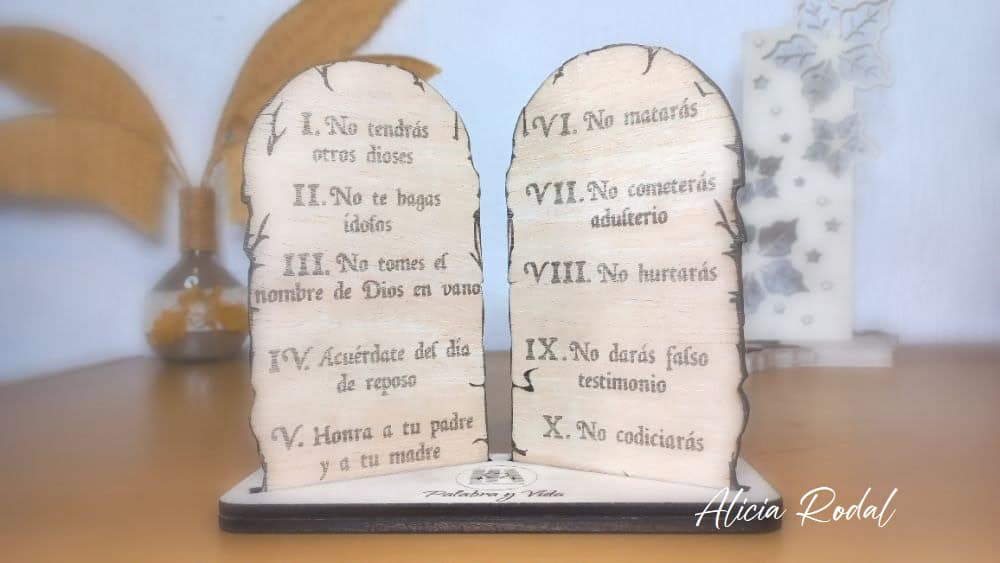 I. No tendrás
otros dioses
II. No te hagas
ídolos
III. No tomes el
nombre de Dios en vano
IV. Acuérdate del día
de reposo
V. Honra a tu padre
y a tu madre
VI. No matarás
VII. No cometerás
adulterio
VIII. No hurtarás
IX. No darás falso
testimonio
X. No codiciarás
Palabra y Vida
Alicia Rodal